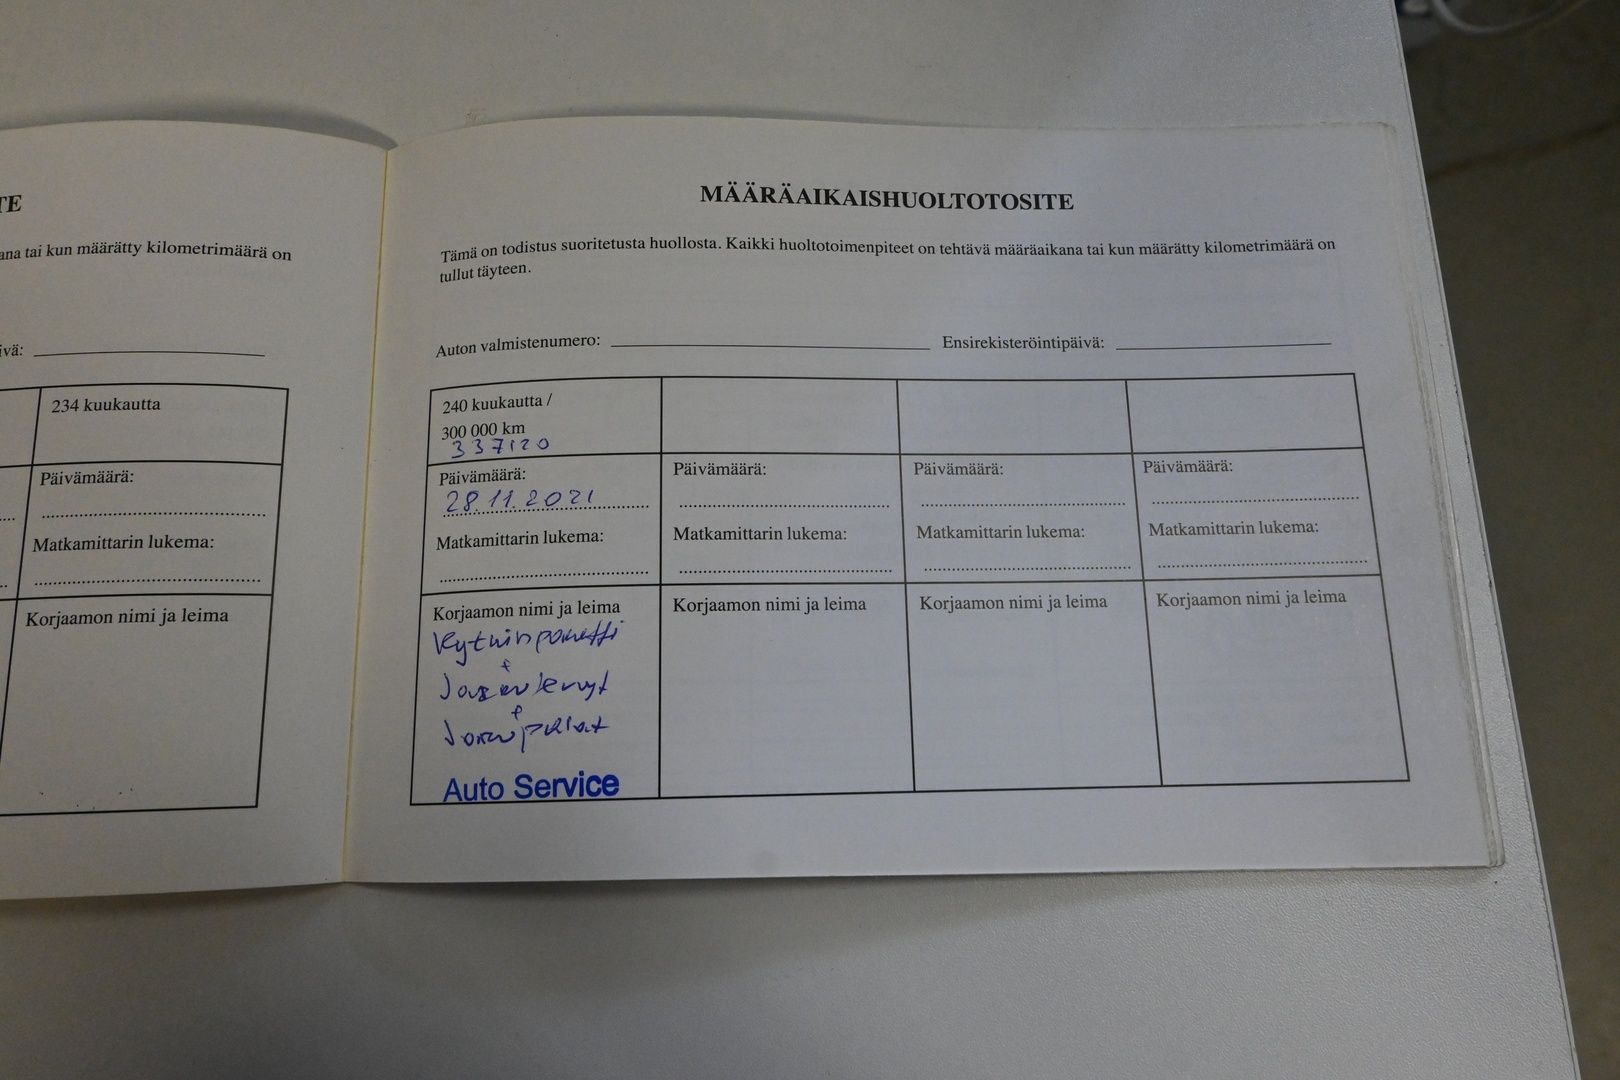 TE
ana tai kun määrätty kilometrimäärä on
ivä:
234 kuukautta
Päivämäärä:
Matkamittarin lukema:
Korjaamon nimi ja leima
MÄÄRÄAIKAISHUOLTOTOSITE
Tämä on todistus suoritetusta huollosta. Kaikki huoltotoimenpiteet on tehtävä määräaikana tai kun määrätty kilometrimäärä on
tullut täyteen.
Auton valmistenumero: Ensirekisteröintipäivä:
240 kuukautta /
300 000 km
337120
Päivämäärä:
28.11.2021
Matkamittarin lukema:
Korjaamon nimi ja leima
Kytkinpaketti
+
Jousenlevyt
+
Jarrupalat
Auto Service
Päivämäärä:
Matkamittarin lukema:
Korjaamon nimi ja leima
Päivämäärä:
Matkamittarin lukema:
Korjaamon nimi ja leima
Päivämäärä:
Matkamittarin lukema:
Korjaamon nimi ja leima